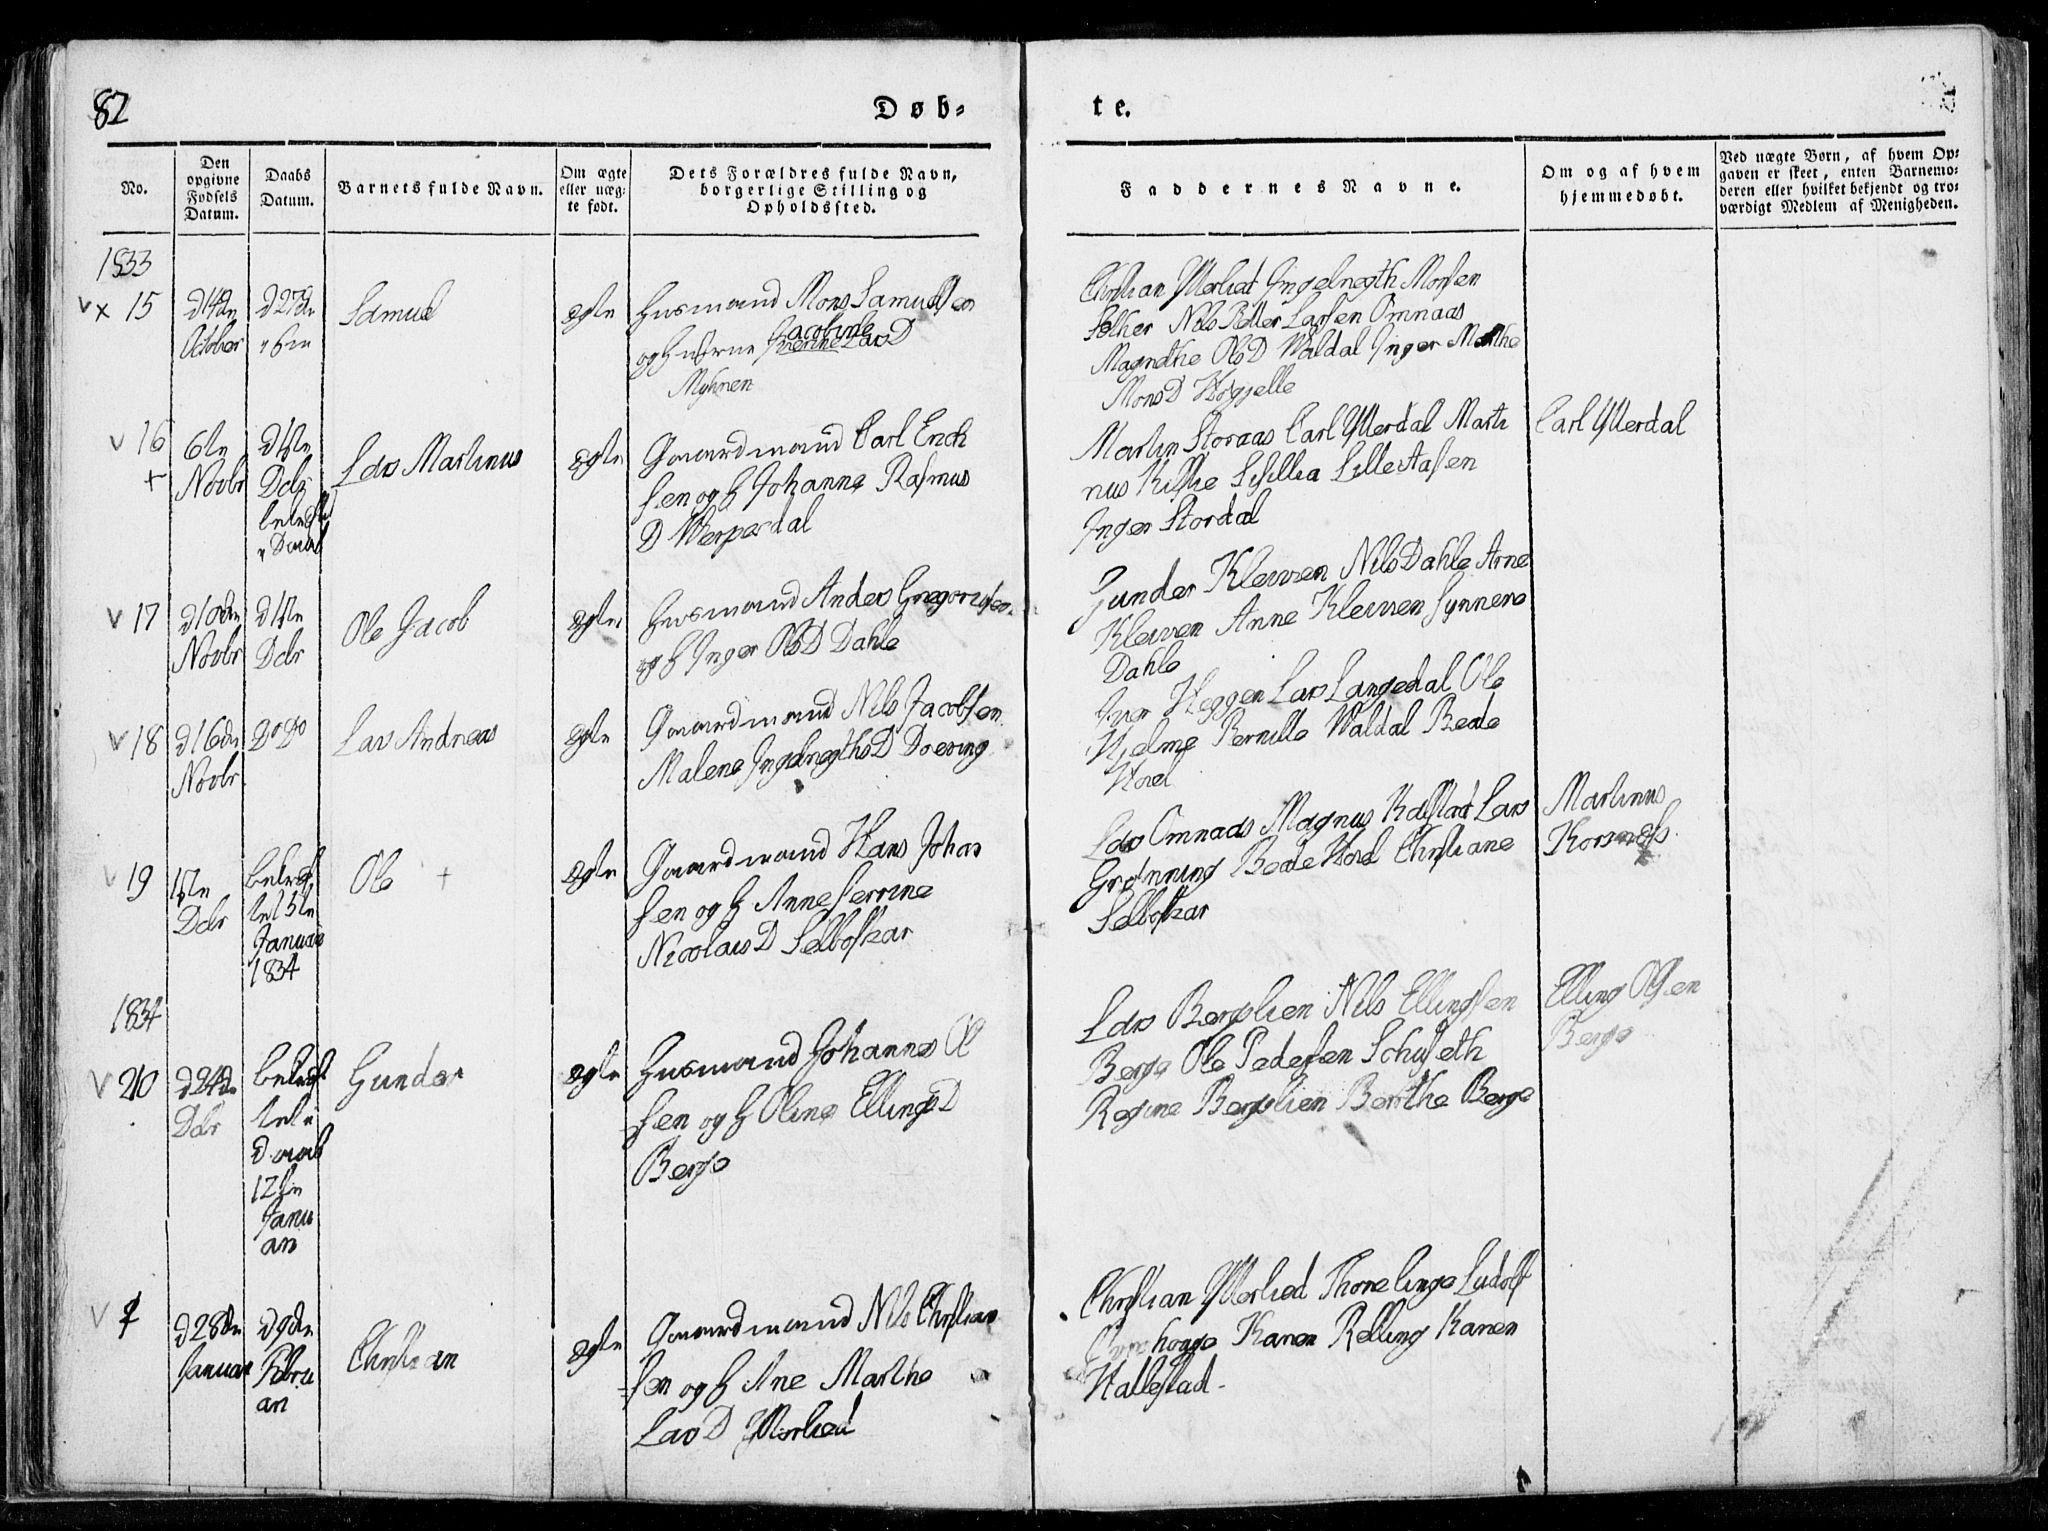 82
Døb-
te.
No.
Den
opgivne
Fødsels
Datum.
Daabs
Datum.
Barnets fulde Navn.
Om ægte
eller uæg-
te født.
Dets Forældres fulde Navn,
borgerlige Stilling og
Opholdssted.
Faddernes Navne.
Om og af hvem
hjemmedøbt.
Ved uægte Børn, af hvem Op-
gaven er skeet, enten Barnemo-
deren eller hvilket bekjendt og tro-
værdigt Medlem af Menigheden.
1833
15
d 14de
October
d 27de
Samuel
ægte
Huusmand Mons Samuelsen
og Hustrue Jacobine LarsD
Myhren
Christian Ytterlied Ingebregth Monsen
Nils Petter Larsen Omnaas
Magrethe OlsD Waldal Inger Marthe
MonsD
16
6te
Novbr
d 1ste
Dcbr
Lars Martinus
ægte
Gaardmand Carl Erich
sen og H Johanne Rasmus
D
Martin Storaas Carl Ytterdal Marti
nus
Inger Stordal
Carl Ytterdal
17
d 10de
Novbr
d 1ste
Dcbr
Ole Jacob
ægte
Huusmand Anders Gregoriusen
og H Inger OlsD Dahle
Gunder Klewen Nils Dahle Arne
Klewen Anne Klewen Synnere
Dahle
18
d 16de
Novbr
Do Do
Lars Andreas
ægte
Gaardmand Nils Jacobsen
Malene IngebregthsD Doeving
Iver Heggen Lars Langedal Ole
Hielme Pernille Waldal Beate
19
1ste
Dcbr
bekræf
tet 5te
Januar
1834
Ole +
ægte
Gaardmand Hans Johan
sen og H Anne Serrine
NicolaisD Selboskar
Lars Omnaas Magnus Lars
Grønning Beate Christiane
Selboskar
Martinus
Korsnæss
1834
20
d 24de
Dcbr
bekræf
tet
Daab
12te
Janu
ari
Gunder
ægte
Huusmand Johannes Ol
sen og H Oline EllingsD
Berge
Lars Bergslien Nils Ellingsen
Berge Ole Pedersen
Regine Bergslien Berthe Berge
Elling Olsen
Berge
1
d 28de
Januar
d 9de
Febru
ari
Christian
ægte
Gaardmand Nils Christian
sen og H Ane Marthe
LarsD Ytterlied
Christian Ytterlied Ludolf
Karen Relling Karen
Hallestad